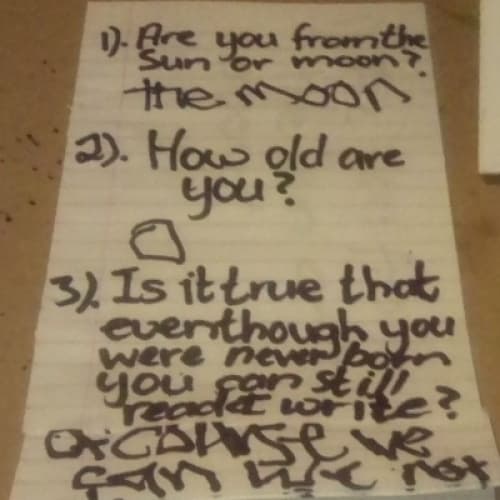 1). Are you from the
Sun or moon?
the moon
2). How old are
you?
0
3). Is it true that
eventhough you
were never born
you can still
read & write?
of course we
can we not